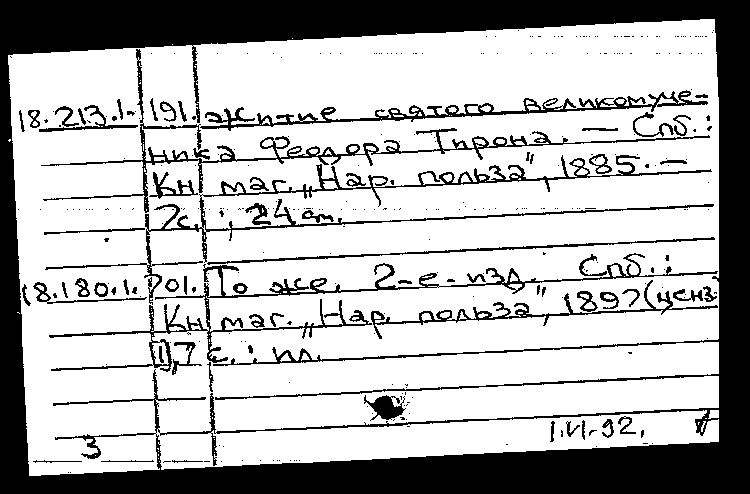 18.213.1.191. Житие святого великомуче-
ника Феодора Тирона. — Спб.:
Кн маг. „Нар. польза", 1885. —
7с. ; 24 см.
18.180.1.701. То же. 2-е-изд. Спб.:
Кн маг. „Нар. польза", 1897 (ценз.
[1], 7 с. : ил.
3 1.VI.92.